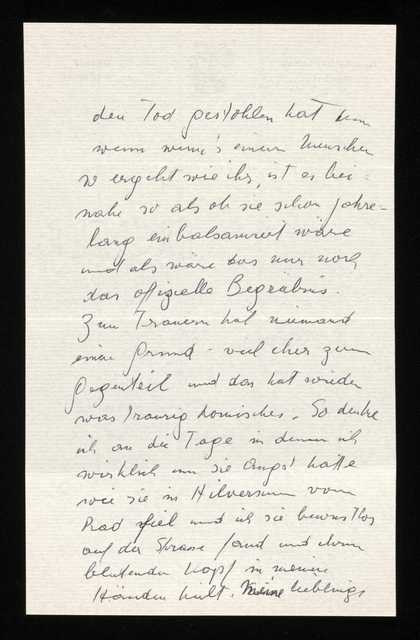 den Tod gestohlen hat denn
wenn wenn's einem Menschen
so ergeht wie ihr, ist es bei-
nahe so als ob sie schon jahre-
lang einbalsamiert wäre
und als wäre das nur noch
das offizielle Begräbnis.
Zum Trauern hat niemand
einen Grund - viel eher zum
Gegenteil und das hat wieder
was traurig komisches. So denke
ich an die Tage in denen ich
wirklich um sie Angst hatte
wie sie in Hilversum vom
Rad fiel und ich sie bewusstlos
auf der Strasse fand und ihren
blutenden Kopf in meinen
Händen hielt. Meine Lieblings